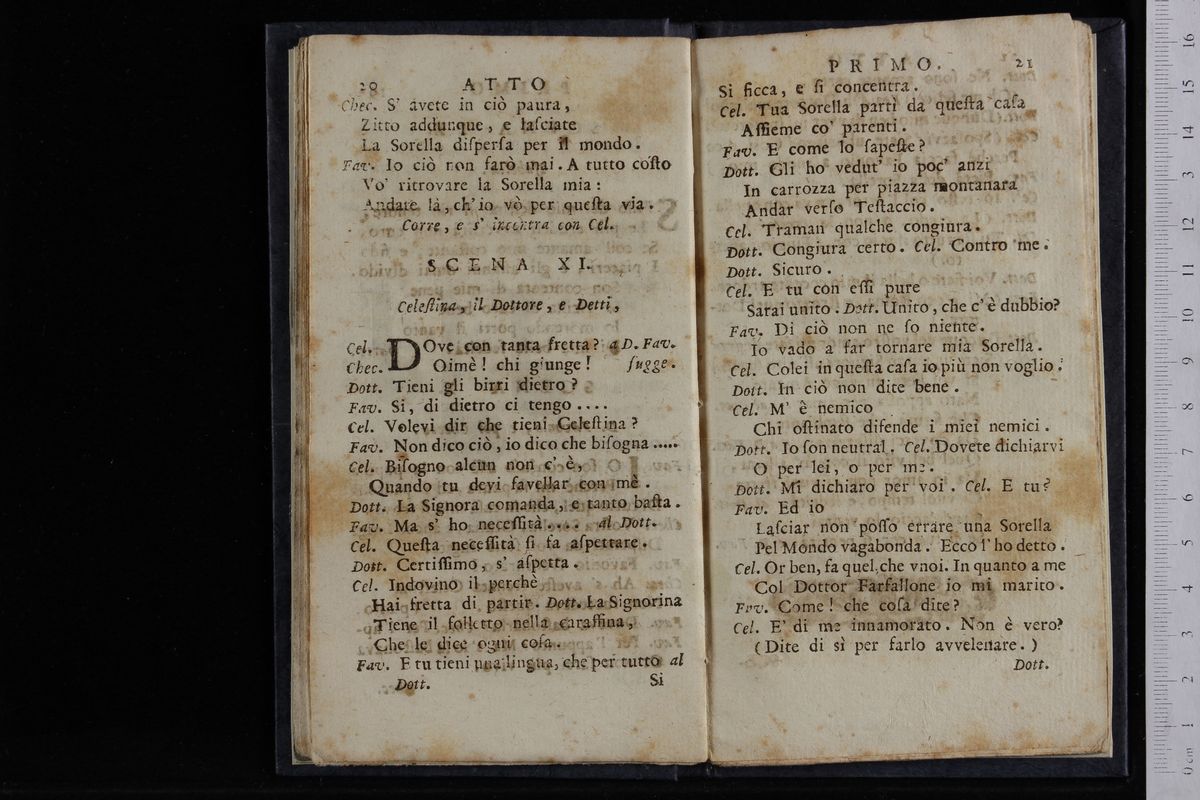 20 ATTO
Chec. S' avete in ciò paura,
Zitto addunque, e laſciate
La Sorella diſperſa per il mondo.
Fav. Io ciò non farò mai. A tutto coſto
Vo' ritrovare la Sorella mia:
Andate là, ch' io vò per queſta via.
Corre, e s' incontra con Cel.
SCENA XI.
Celeſtina, il Dottore, e Detti,
Cel. DOve con tanta fretta? a D. Fav.
Chec. Oimè! chi giunge! fugge.
Dott. Tieni gli birri dietro?
Fav. Si, di dietro ci tengo....
Cel. Volevi dir che tieni Celeſtina?
Fav. Non dico ciò, io dico che biſogna.....
Cel. Biſogno alcun non c' è,
Quando tu devi favellar con mè.
Dott. La Signora comanda, e tanto baſta.
Fav. Ma s' ho neceſſità.... al Dott.
Cel. Queſta neceſſità ſi fa aſpettare.
Dott. Certiſſimo, s' aſpetta.
Cel. Indovino il perchè
Hai fretta di partir. Dott. La Signorina
Tiene il folletto nella caraffina,
Che le dice ogni coſa.
Fav. E tu tieni una lingua, che per tutto al
Dott. Si
PRIMO. 21
Si ficca, e ſi concentra.
Cel. Tua Sorella partì da queſta caſa
Aſſieme co' parenti.
Fav. E come lo ſapeſte?
Dott. Gli ho vedut' io poc' anzi
In carrozza per piazza montanara
Andar verſo Teſtaccio.
Cel. Traman qualche congiura.
Dott. Congiura certo. Cel. Contro me.
Dott. Sicuro.
Cel. E tu con eſſi pure
Sarai unito. Dott. Unito, che c' è dubbio?
Fav. Di ciò non ne ſo niente.
Io vado a far tornare mia Sorella.
Cel. Colei in queſta caſa io più non voglio.
Dott. In ciò non dite bene.
Cel. M' è nemico
Chi oſtinato difende i miei nemici.
Dott. Io ſon neutral. Cel. Dovete dichiarvi
O per lei, o per me.
Dott. Mi dichiaro per voi. Cel. E tu?
Fav. Ed io
Laſciar non poſſo errare una Sorella
Pel Mondo vagabonda. Ecco l' ho detto.
Cel. Or ben, fa quel che vuoi. In quanto a me
Col Dottor Farfallone io mi marito.
Fav. Come! che coſa dite?
Cel. E' di me innamorato. Non è vero?
(Dite di sì per farlo avvelenare.)
Dott.